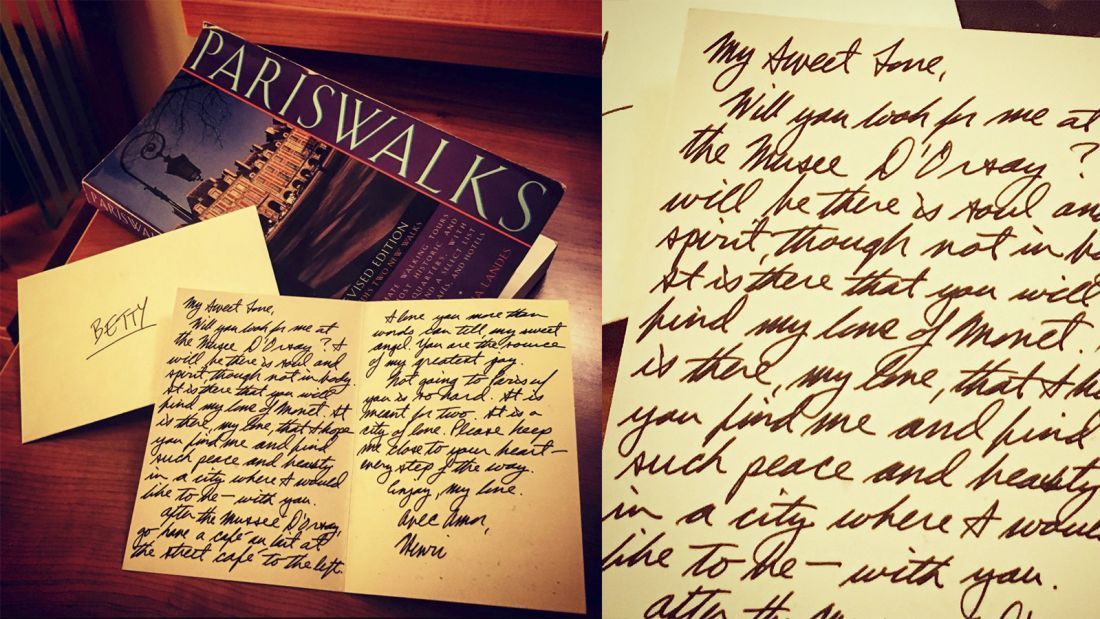 PARISWALKS
PARISWALK
REVISED EDITION
TWO NEW WALKS
WALKING TOURS
HISTORIC AND
QUARTERS, WITH
AND HOTELS
LANDES
BETTY
My Sweet Love,
Will you look for me at
the Musee D'Orsay? I
will be there is soul and
spirit, though not in body.
It is there that you will
find my love of Monet. It
is there, my love, that I hope
you find me and find
such peace and beauty
in a city where I would
like to be — with you.
After the Mussee D'Orsay,
go have a café au lait at
the street café to the left.
I love you more than
words can tell, my sweet
angel. You are the source
of my greatest joy.
Not going to Paris w/
you is so hard. It is
meant for two. It is a
city of love. Please keep
me close to your heart —
every step of the way.
Enjoy, my love.
Avec Amor,
Henri
My Sweet Love,
Will you look for me at
the Musee D'Orsay?
will be there is soul an
spirit, though not in bo
It is there that you will
find my love of Monet.
is there, my love, that I ho
you find me and find
such peace and beauty
in a city where I woul
like to be — with you.
After the